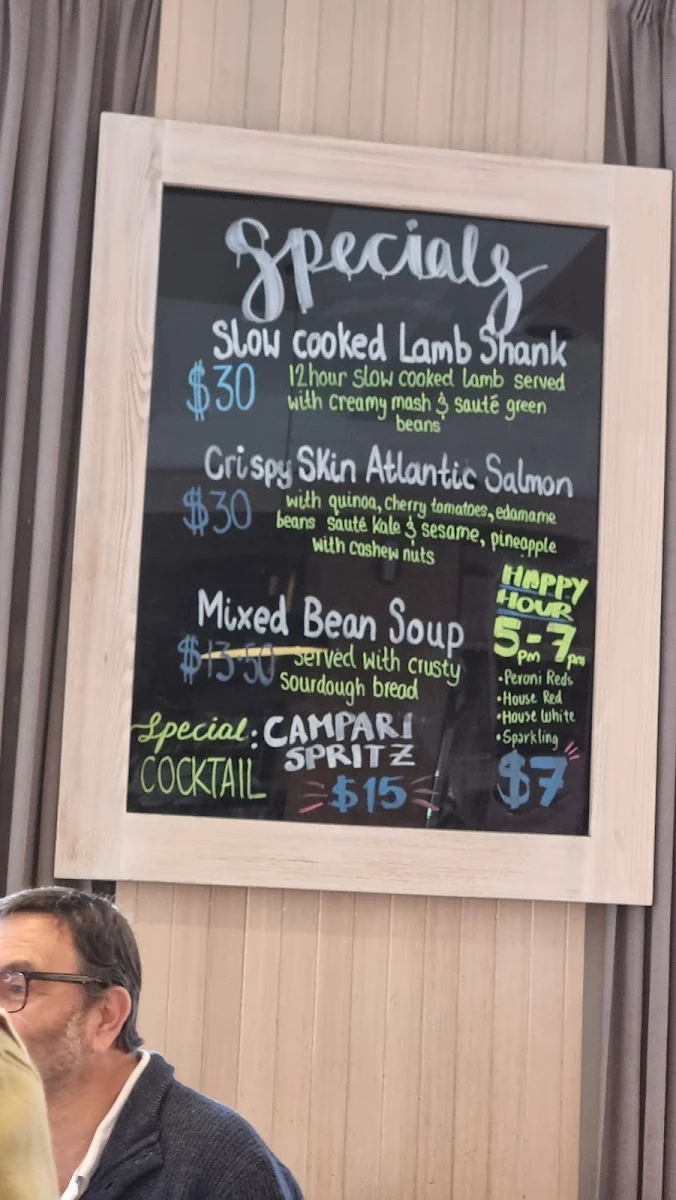 Specials
Slow cooked Lamb Shank
$30
12hour slow cooked lamb served
with creamy mash & sauté green
beans
Crispy Skin Atlantic Salmon
$30
with quinoa, cherry tomatoes, edamame
beans sauté kale & sesame, pineapple
with cashew nuts
Mixed Bean Soup
$13.50
served with crusty
sourdough bread
Special: CAMPARI
SPRITZ
COCKTAIL
$15
HAPPY
HOUR
5-7
pm pm
•Peroni Reds
•House Red
•House White
•Sparkling
$7